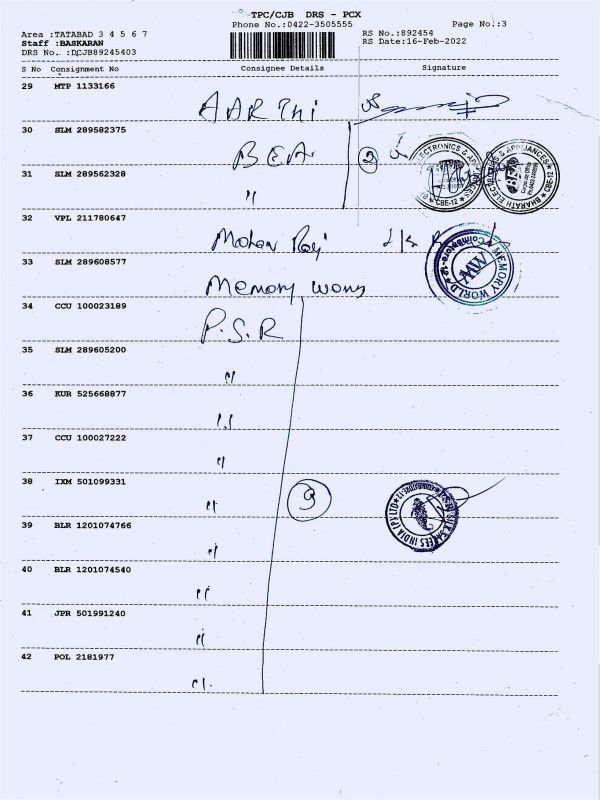 TPC/CJB DRS - PCX
Phone No.:0422-3505555
Page No.:3
Area :TATABAD 3 4 5 6 7
Staff :BASKARAN
DRS No. :DCJB89245403
RS No.:892454
RS Date:16-Feb-2022
S No Consignment No Consignee Details Signature
29 MTP 1133166
AARTHI
30 SLM 289582375
BEA
31 SLM 289562328
"
32 VPL 211780647
Mohan Raj
33 SLM 289608577
Memory World
34 CCU 100023189
P.S.R
35 SLM 289605200
"
36 KUR 525668877
"
37 CCU 100027222
"
38 IXM 501099331
"
39 BLR 1201074766
"
40 BLR 1201074540
"
41 JPR 501991240
"
42 POL 2181977
"
ELECTRONICS & APPLIANCES
CBE-12
BHARATH ELECTRONICS & APPLIANCES
CBE-12
MEMORY WORLD
Coimbatore-12
MW
INDIA (P) LTD